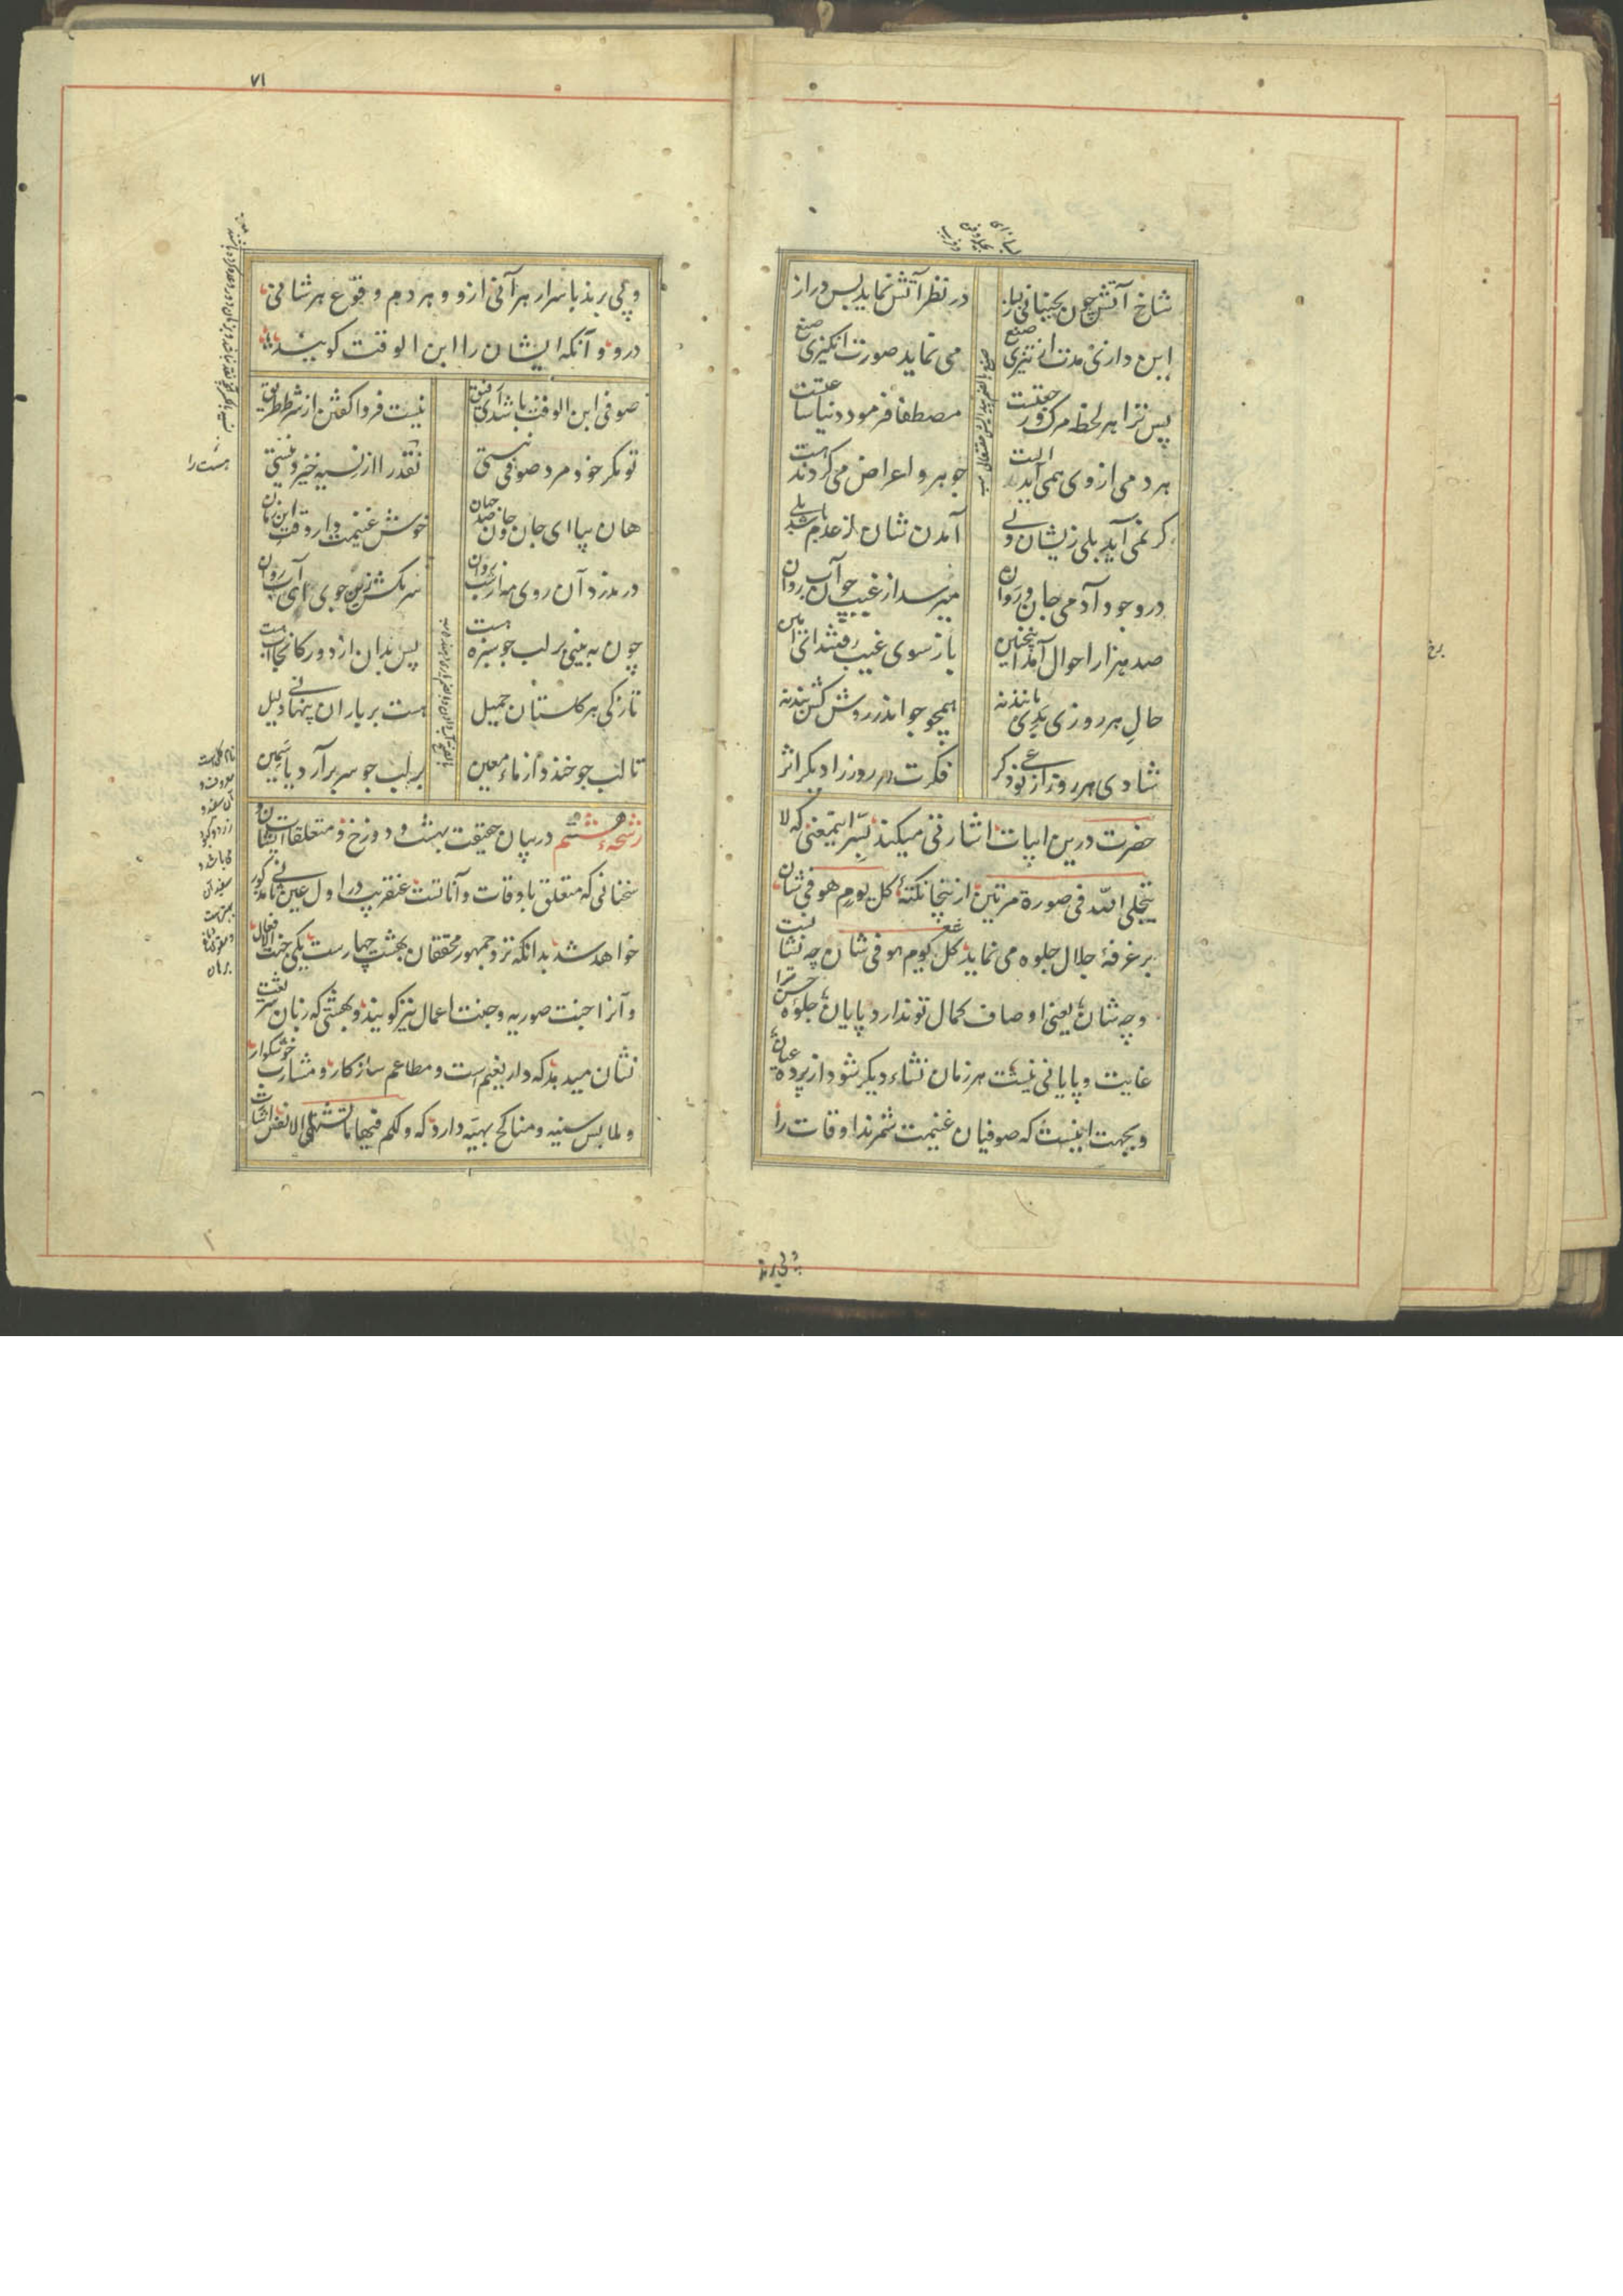 شاخ آتش چون بجنبانی بساز در نظر آتش نماید بس دراز
این درازی مدت از تیزی صنع می نماید صورت انگیزی صنع
پس ترا هر لحظه مرک و رجعتیست مصطفا فرمود دنیا ساعتیست
هر دمی از وی همی آید الست جوهر و اعراض می گردند هست
گر نمی آید بلی زیشان ولی آمدن شان از عدم باشد بلی
در وجود آدمی جان و روان میرسد از غیب چو آب روان
صد هزار احوال آمد اینچنین باز سوی غیب رفتند ای امین
حال هر روزی بدی مانند نه همچو جو اندر روش کش بند نه
شادی هر روز از نوعی دگر فکرت هر روز را دیگر اثر
حضرت درین ابیات اشارتی میکند بسر اینمعنی که لا
یتجلی الله فی صورة مرتین از ینجا نکتهٔ کل یوم هو فی شان
بر غرفهٔ جلال جلوه می نماید کل یوم هو فی شان چه نشانست
و چه شان یعنی اوصاف کمال تو ندارد پایان جلوهٔ حسن ترا
غایت و پایانی نیست هر زمان نشاء دیگر شود از پرده عیان
و بجهت اینست که صوفیان غنیمت شمرند اوقات را
۷۱
و پی برند باسرار هر آنی ازو و هر دم وقوع هر شانی
درو و آنکه ایشان را ابن الوقت کویند
صوفی ابن الوقت باشد ای رفیق نیست فردا کفتن از شرط طریق
تو مکر خود مرد صوفی نیستی نقد را از نسیه خیزد نیستی
هان بیا ای جان جان و صد جهان خوش غنیمت دار وقت این زمان
در مدزد آن روی مه از شب روان سر مکش زین جوی ای آب روان
چون به بینی بر لب جو سبزه هست پس بدان از دور کانجا آب هست
تازکی هر کلستان جمیل هست بر باران پنهانی دلیل
تا لب جو خندد از ماء معین بر لب جو سر برآرد یاسمین
رشحهٔ هشتم در بیان حقیقت بهشت و دوزخ و متعلقات ایشان و
سخنانی که متعلق باوقات و آناتست عنقریب در اول عین ثانی مذکور
خواهد شد بدانکه نزد جمهور محققان بهشت چهارست یکی جنت الافعال
و آنرا جنت صوریه و جنت اعمال نیز کویند و بهشتی که زبان شریعت
نشان میدهد که دار نعیم است و مطاعم سازکار و مشارب خوشکوار
و ملابس سنیه و مناکح بهیه دارد که ولکم فیها ما تشتهی الانفس اشارت